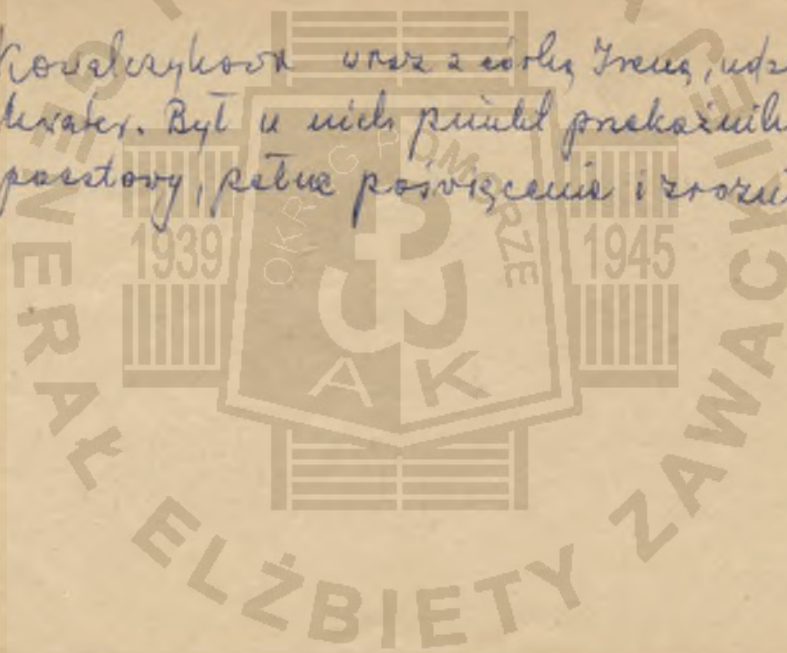 Kowalczykowa wraz z córką Ireną, udz
kwater. Był u nich punkt przekaźnik
pocztowy, pełne poświęcenia i zrozu
1939 OKRĘG POMORZE 1945
AK
GENERAŁ ELŻBIETY ZAWACKIEJ